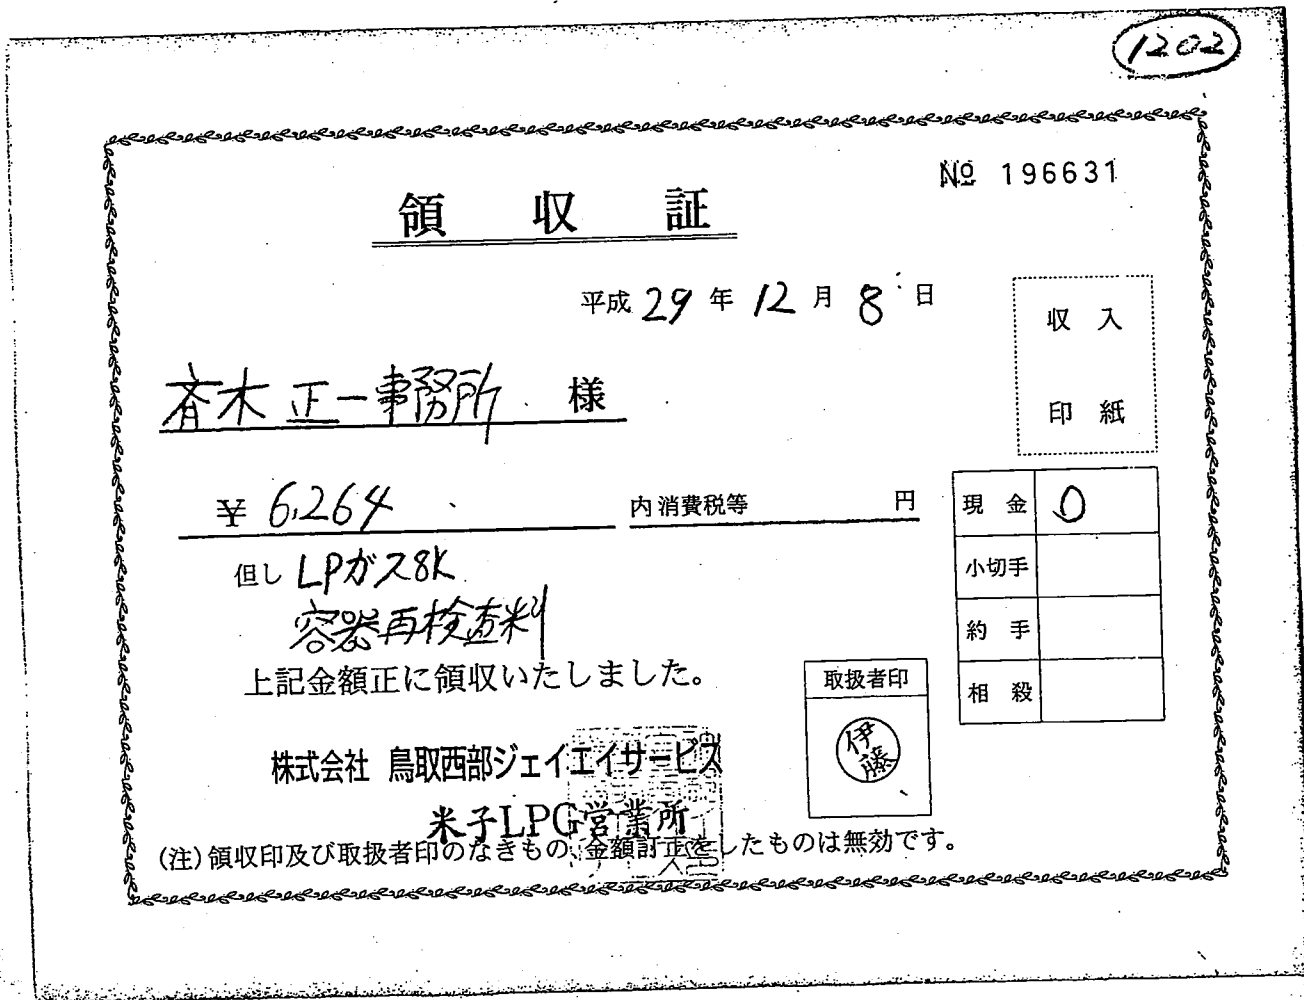 1202
№ 196631
領収証
平成 29 年 12 月 8 日
収入
印紙
斉木正一事務所 様
¥ 6,264 内消費税等 円
現金 0
小切手
約手
相殺
但し LPガス8K
容器再検査料
上記金額正に領収いたしました。
取扱者印
伊藤
株式会社 鳥取西部ジェイエイサービス
米子LPG営業所
(注)領収印及び取扱者印のなきもの、金額訂正をしたものは無効です。